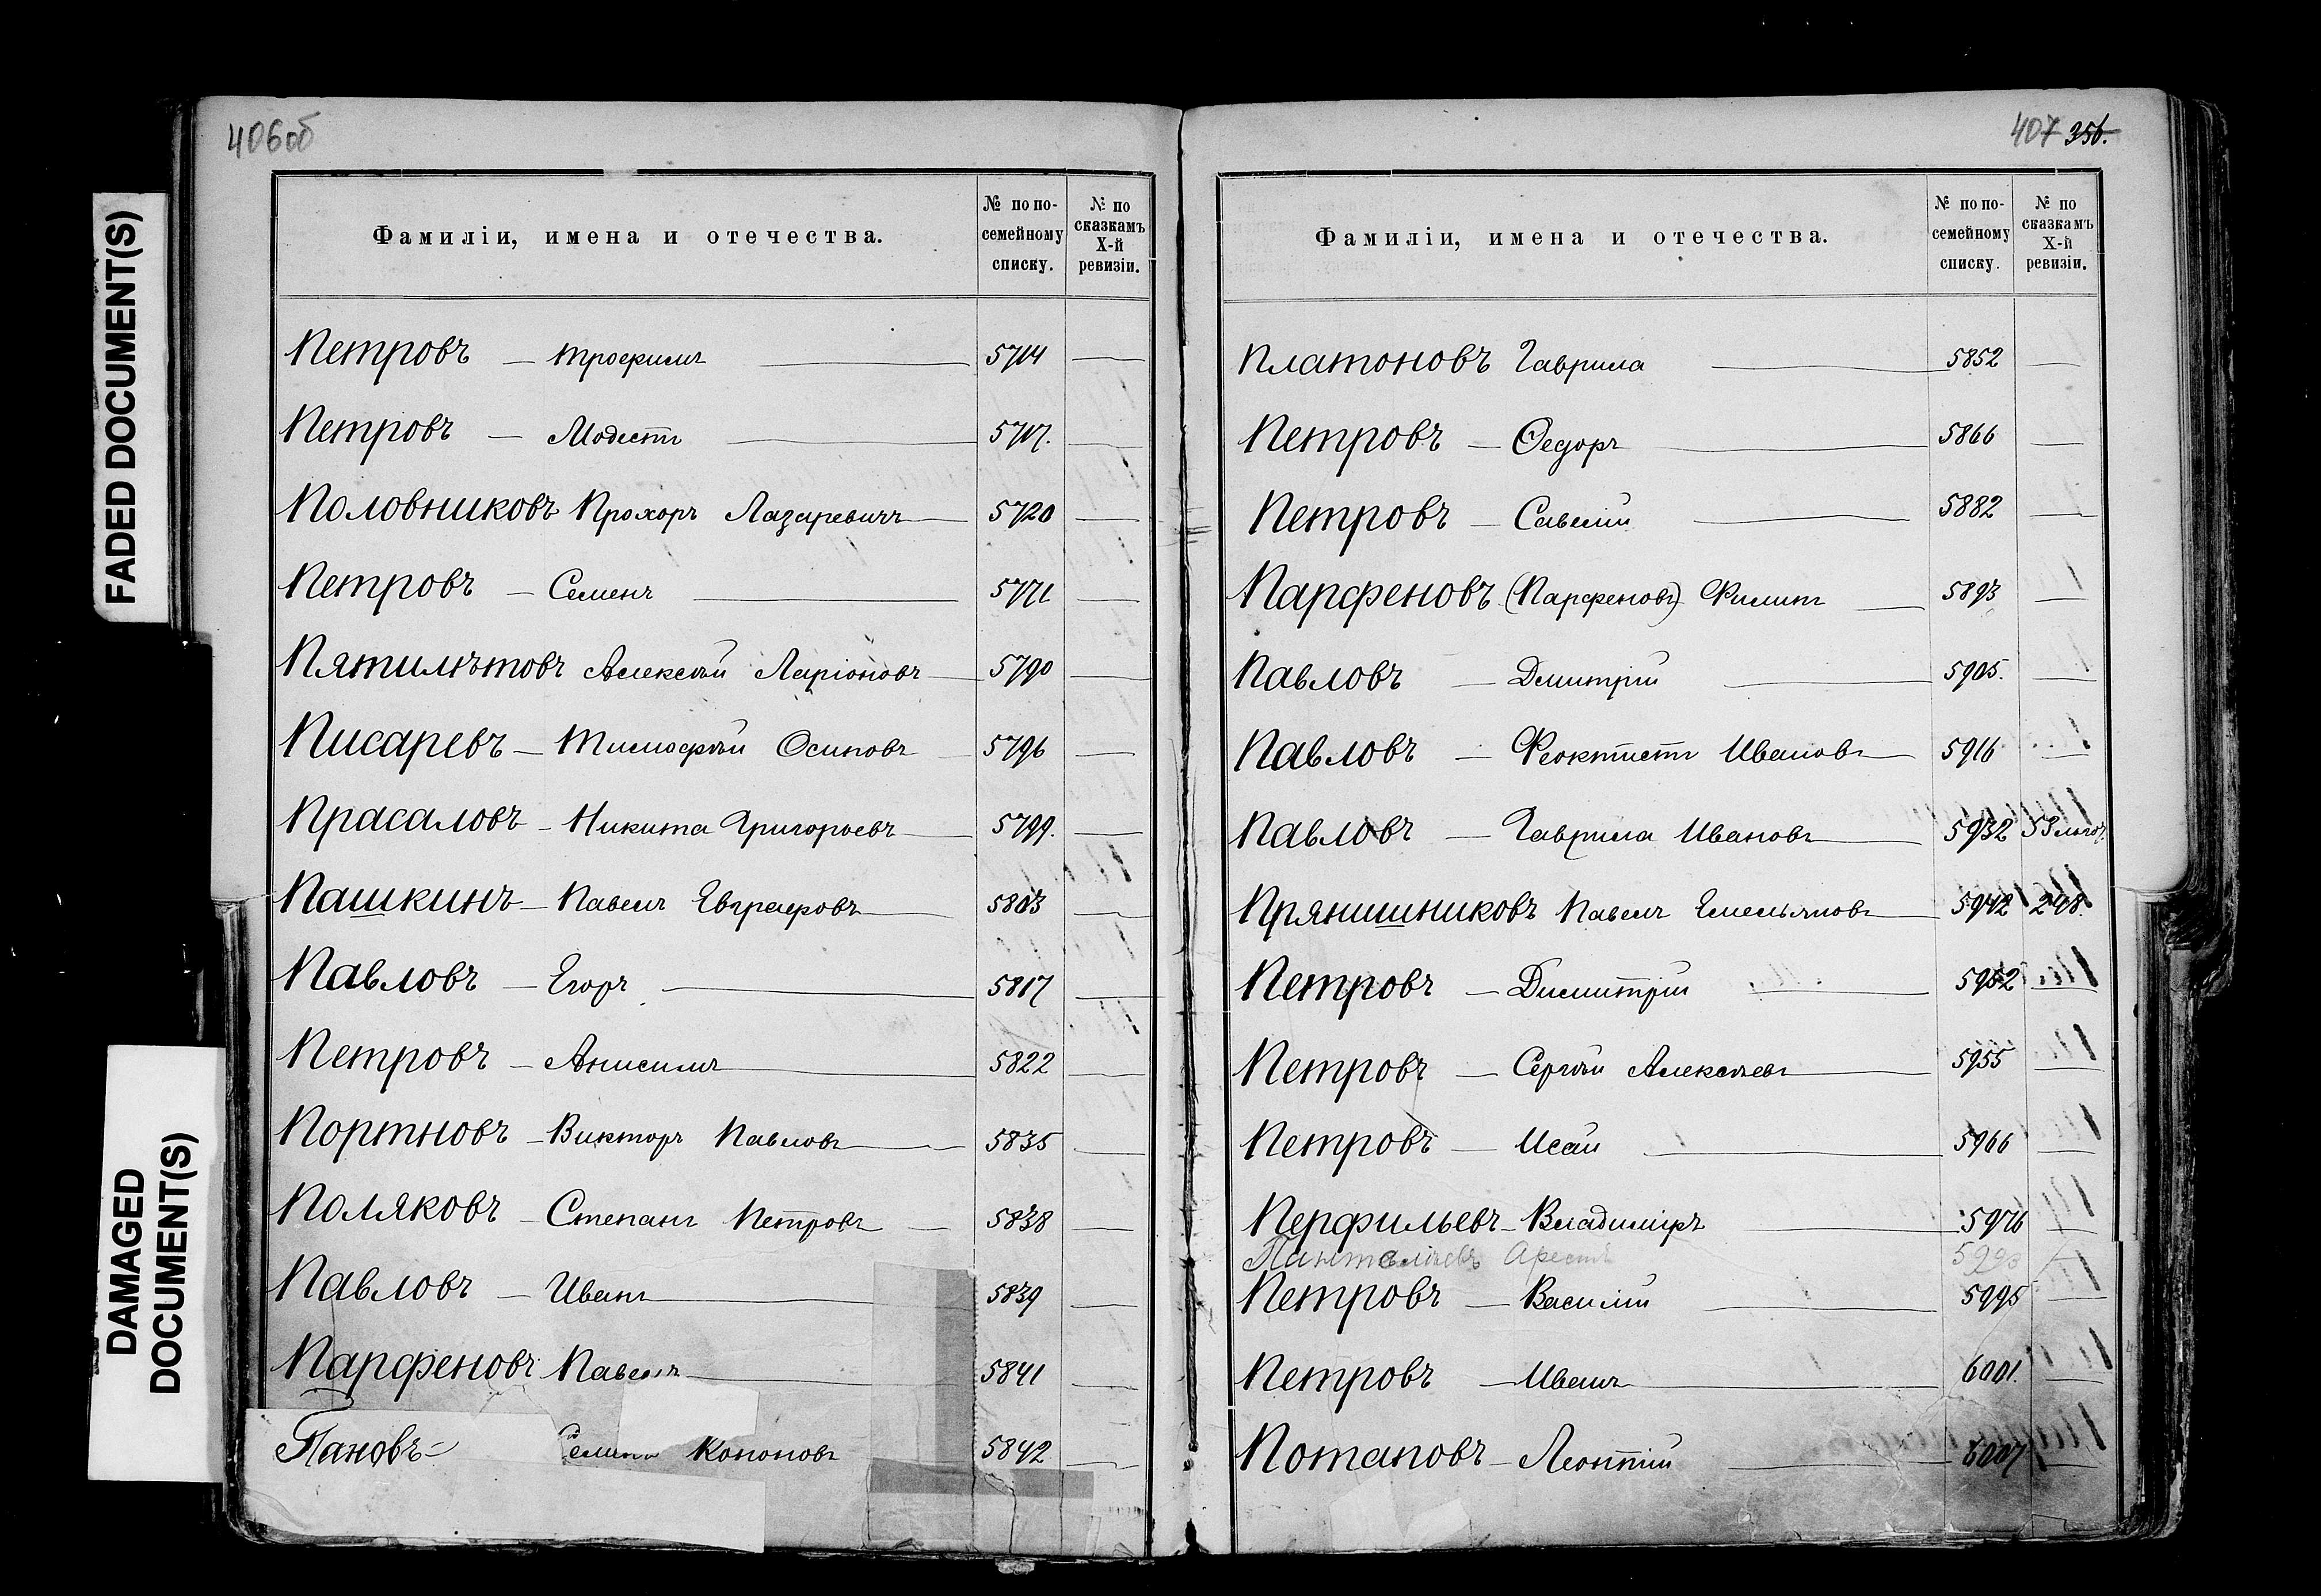 406об
Фамиліи, имена и отечества.
№ по по-семейному списку.
№ по сказкамъ X-й ревизіи.
Петровъ — Трофимъ — 5714 —
Петровъ — Модестъ — 5717. —
Половниковъ Прохоръ Лазаревичъ — 5720 —
Петровъ — Семенъ — 5771 —
Пятилѣтовъ Алексѣй Ларіоновъ — 5790 —
Писаревъ — Тимофѣй Осиповъ — 5796 —
Прасаловъ — Никита Григорьевъ — 5799. —
Пашкинъ — Павелъ Евграфовъ — 5803 —
Павловъ — Егоръ — 5817 —
Петровъ — Анисимъ — 5822 —
Портновъ — Викторъ Павловъ — 5835 —
Поляковъ — Степанъ Петровъ — 5838 —
Павловъ — Иванъ — 5839 —
Парфеновъ Павелъ — 5841 —
Пановъ — Кононовъ 5842 —
407 356.
Фамиліи, имена и отечества.
№ по по-семейному списку.
№ по сказкамъ X-й ревизіи.
Платоновъ Гаврила — 5852 —
Петровъ — Ѳедоръ — 5866 —
Петровъ — Савелій — 5882 —
Парфеновъ (Парфеновъ) Филипъ — 5893 —
Павловъ — Дмитрій — 5905. —
Павловъ — Феоктистъ Ивановъ — 5916 —
Павловъ — Гаврила Ивановъ — 5932
Прянишниковъ Павелъ Емельяновъ — 5942 248.
Петровъ — Димитрій — 5952 —
Петровъ — Сергѣй Алексѣевъ — 5955 —
Петровъ — Исай — 5966 —
Перфильевъ — Владиміръ — 5976 —
Пантелѣевъ Арестъ
Петровъ — Василій — 5995 —
Петровъ — Иванъ — 6001. —
Потаповъ — Леонтій — 6007 —
FADED DOCUMENT(S)
DAMAGED
DOCUMENT(S)